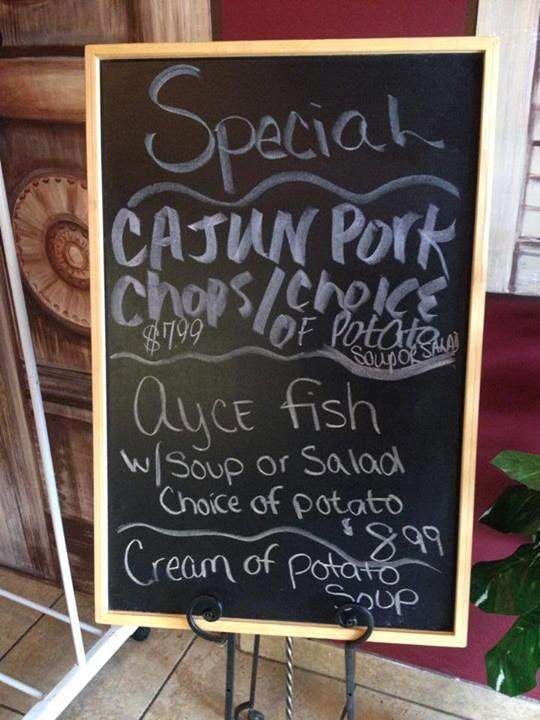 Special
CAJUN Pork
Chops/Choice
$7.99 OF Potato
SOUP OR SALAD
ayce fish
w/Soup or Salad
Choice of potato
$8.99
Cream of potato
Soup